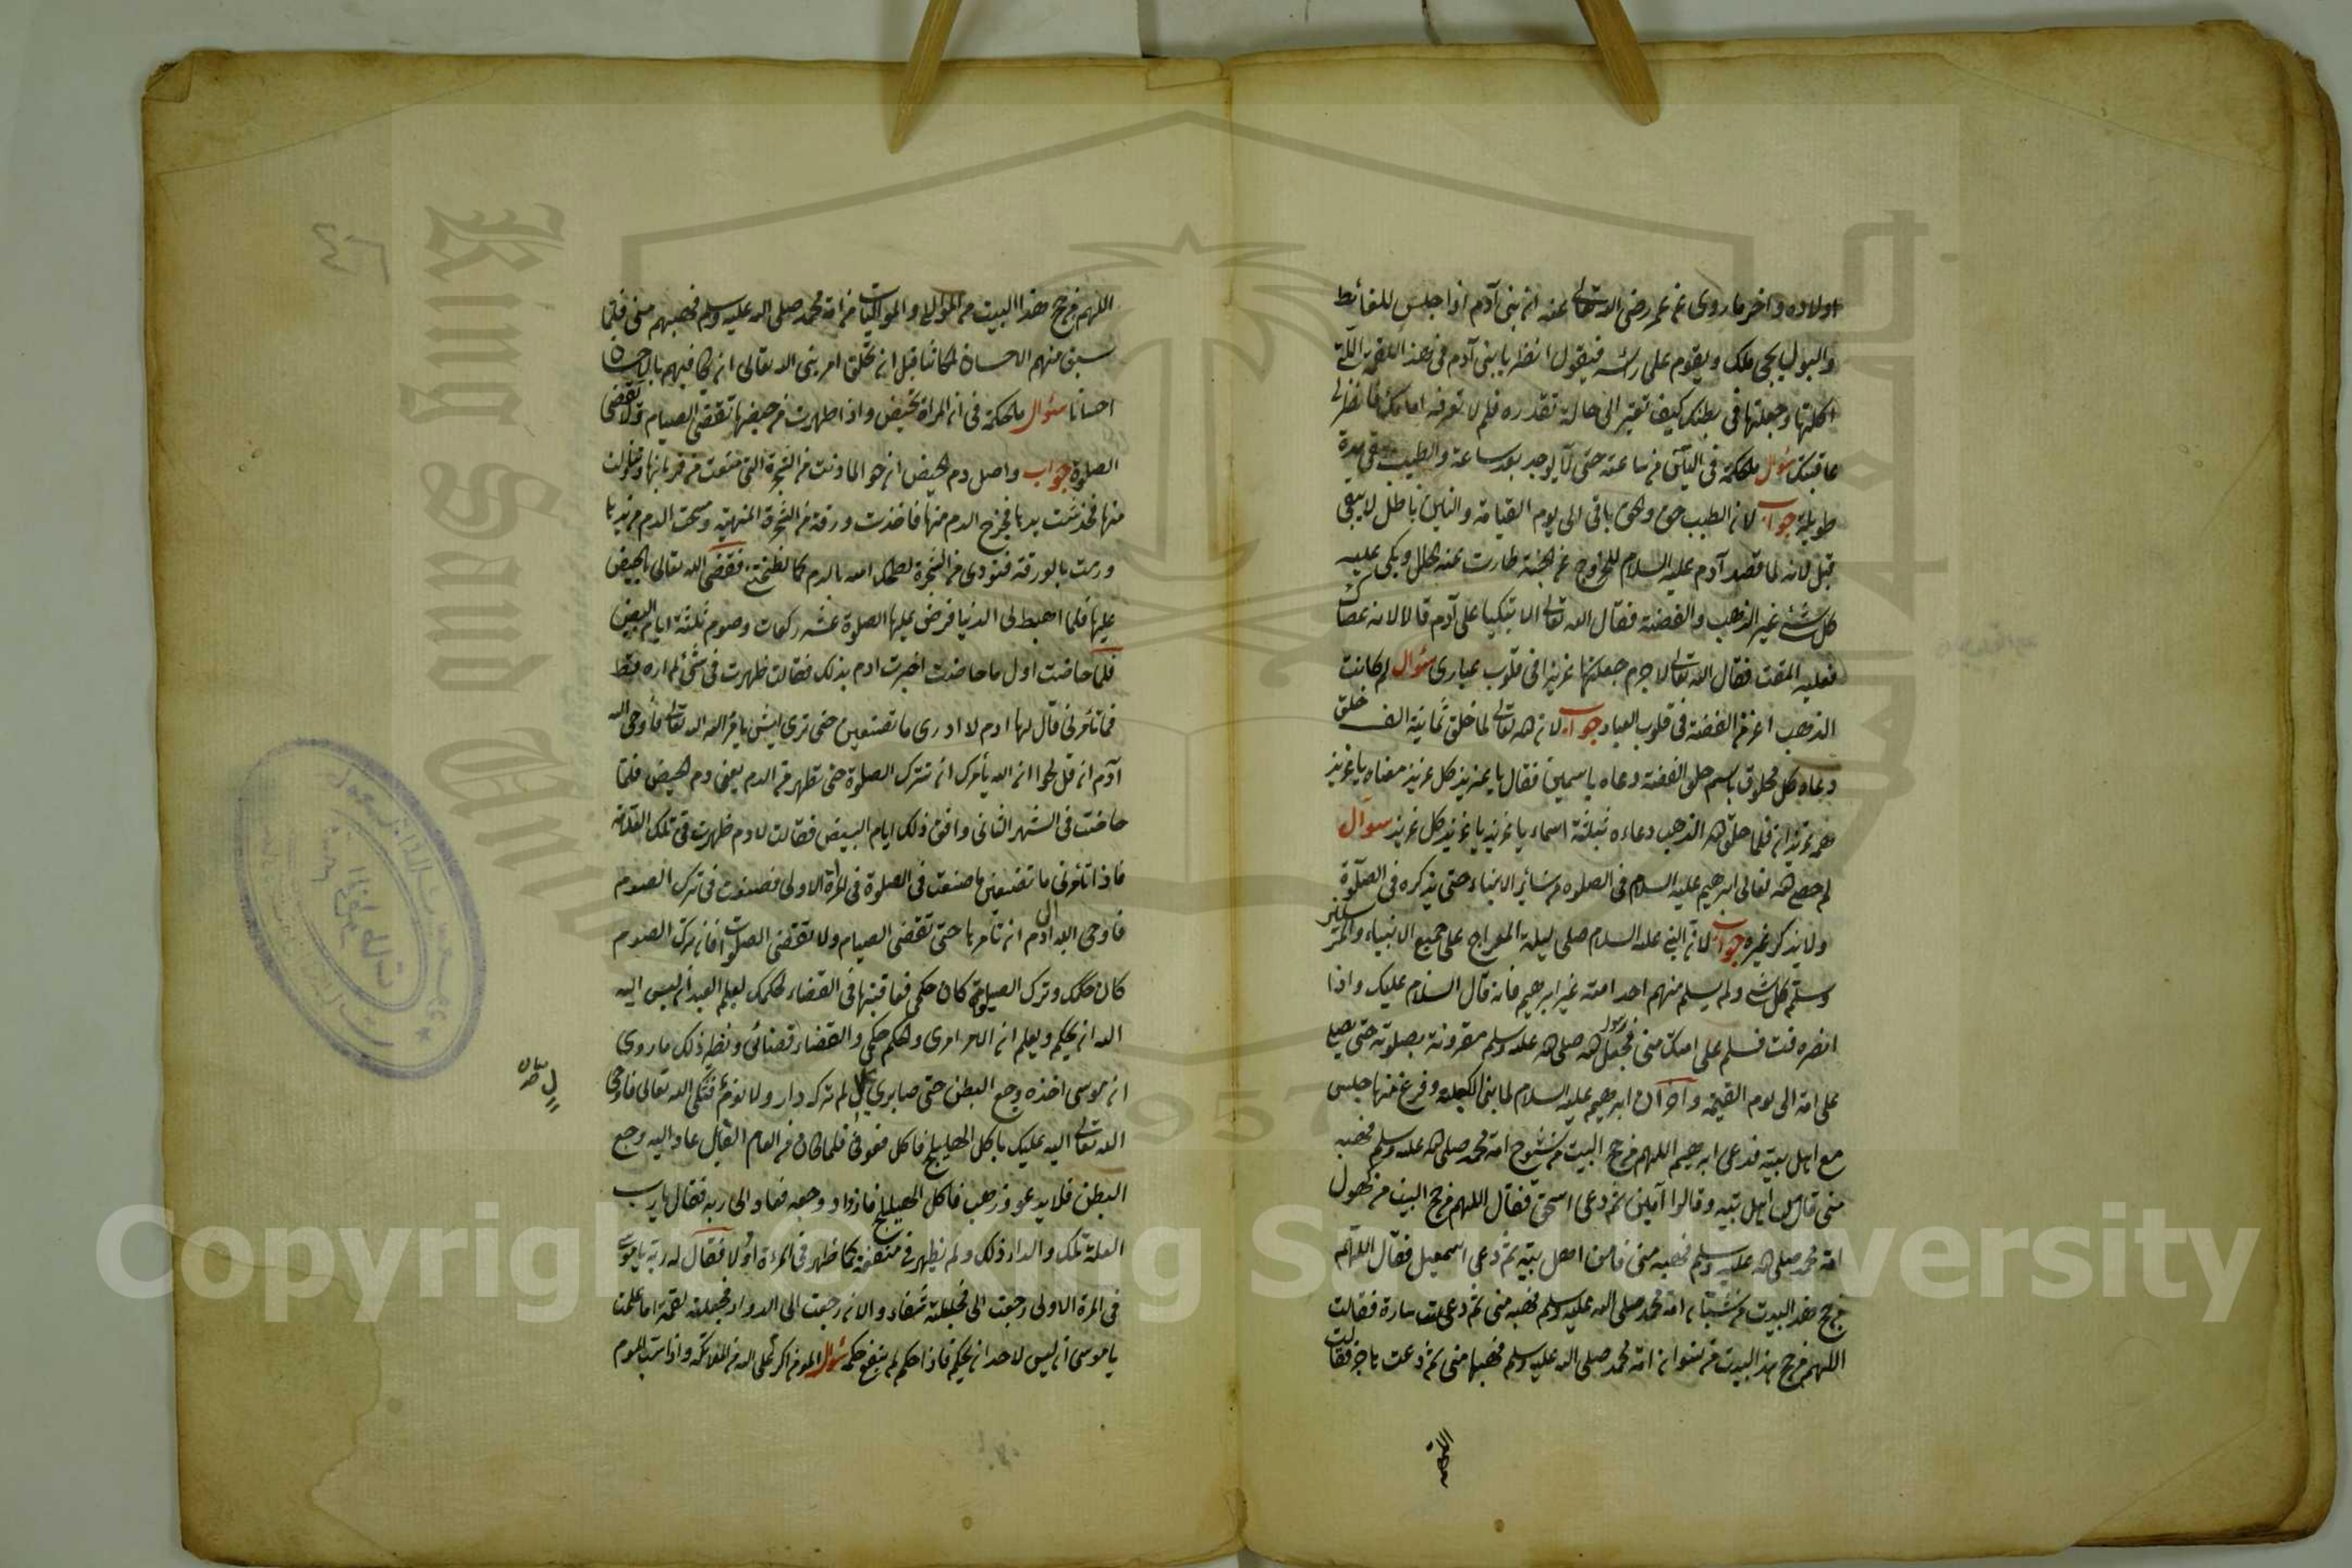 اولاده واخر ما روى عن عمر رضى الله تعالى عنه ان بنى آدم اذا جلس للغائط
والبول يجئ ملك ويقوم على رأسه فيقول انظر يا بنى آدم فى هذه اللقمة التى
اكلتها وجعلتها فى بطنك كيف تغير الى حالة تقدره فلم لا تعرفه اما
عاقبتك سؤال ملحكمة فى من ساعته حتى لا يوجد بعد ساعة والطيب يبقى مدة
طويلة جواب لان الطيب حق والحق باقى الى يوم القيامة و باطل لا يبقى
قيل لانه لما قصد آدم عليه السلام للخروج عن الجنة طارت عنه الحلل وبكى عليه
كل شئ غير الذهب والفضة فقال الله تعالى الا تبكيا على آدم قالا لانه عصاك
فعليه المقت فقال الله تعالى لا جرم جعلتكما عزيزا فى قلوب عبادى سؤال لم كانت
الذهب اعز من الفضة فى قلوب العباد جواب لان الله تعالى لما خلق ثمانية الف خلق
دعاه كل مخلوق باسم خلق الفضة دعاه باسمين فقال يا عزيز كل عزيز معناه يا عزيز
فلما خلق الله الذهب دعاه بثلثة اسماء يا عزيز يا عزيز كل عزيز سؤال
لم خص الله تعالى ابرهيم عليه السلام فى الصلوة من سائر الانبياء حتى يذكره فى الصلوة
ولا يذكر غيره جواب لان النبى عليه السلام صلى ليلة المعراج على جميع الانبياء والمرسلين
وسلم كل نبى ولم يسلم منهم احد امته غير ابرهيم فانه قال السلام عليك واذا
انصرفت فسلم على امتك منى فجعل رسول الله صلى الله عليه وسلم مقرونة بصلوته حتى يصلى
على امة الى يوم القيمة وآخر ان ابرهيم عليه السلام لما بنى الكعبة وفرغ منها جلس
مع اهل بيته فدعى ابرهيم اللهم من حج البيت من شيوخ امة محمد صلى الله عليه وسلم فهبه
منى قال اهل بيته وقالوا آمين ثم دعى اسحق فقال اللهم من حج البيت من كهول
امة محمد صلى الله عليه وسلم فهبه منى فامن اهل بيته ثم دعى اسمعيل فقال اللهم
من حج هذا البيت من شباب امة محمد صلى الله عليه وسلم فهبه منى ثم دعت سارة فقالت
اللهم من حج هذا البيت من نسوان امة محمد صلى الله عليه وسلم فهبها منى ثم دعت هاجر فقالت
اللهم
اللهم من حج هذا البيت من الموالى والمواليات من امة محمد صلى الله عليه وسلم فهبهم منى فلما
سبق منهم الاحسان قبل ان تخلق امرنى الله تعالى ان كافيهم بالاحسان
احسانا سؤال ملحكمة فى ان المراة تحيض واذا طهرت من حيضها تقضى الصيام ولا تقضى
الصلوة جواب واصل دم الحيض ان حوا لما دنت من الشجرة التى منعت من قربانها وتناولت
منها فخدشت يدها فخرج الدم منها فاخذت ورقة من الشجرة المنهية ومسحت الدم من يدها
ورمت بالورقة فنودى من الشجرة لطخك الله بالدم كما لطختنى فقضى الله تعالى بالحيض
عليها فلما اهبط الى الدنيا فرض عليها الصلوة عشر ركعات وصوم ثلثة ايام البيض
فلما حاضت اول ما حاضت اخبرت ادم بذلك فقالت ظهرت فى شئ لم اره قط
فما تأمرنى قال لها ادم لا ادرى ما تصنعين حتى ترى ايش يامر الله تعالى فاوحى الله
آدم ان قل لحوا ان الله يأمرك ان تترك الصلوة حتى تطهر من الدم يعنى دم الحيض فلما
حاضت فى الشهر الثانى وافق ذلك ايام البيض فقالت لادم ظهرت فى تلك العلامة
فماذا تأمرنى ما تصنعين ما صنعت فى الصلوة فى المراة الاولى فصنعت فى ترك الصوم
فاوحى الله الى ادم ان تأمرها حتى تقضى الصيام ولا تقضى الصلوات فان ترك الصوم
كان حكمك وترك الصلوة كان حكمى فعاقبتها فى القضاء لحكمك ليعلم العبد انه ليس اليه
الله ان يحكم ويعلم ان الامر امرى والحكم حكمى والقضاء قضائى ونظير ذلك ما روى
ان موسى اخذه وجع البطن حتى لم تركه دار ولا نوم فشكى الله تعالى فاوحى
الله تعالى اليه عليك باكل الهليلج فاكل فعوفى فلما كان من العام القابل عاد اليه وجع
البطن فلا يدعو وذهب فاكل الهليلج فازداد وجعه فعاد الى ربه فقال يا رب
العلة تلك والداء ذلك ولم يظهر فى منفعة كما ظهر فى المرة اولا فقال له ربه يا موسى
فى المرة الاولى رجعت الى فجعلته شفاء والان رجعت الى الدواء فجعلته نقمة اما علمت
يا موسى انه ليس لاحد ان يحكم فاذا حكم لم ينفع حكمه سؤال المؤمن اكرم على الله من الملائكة
Copyright © King Saud University
King Saud University
1957